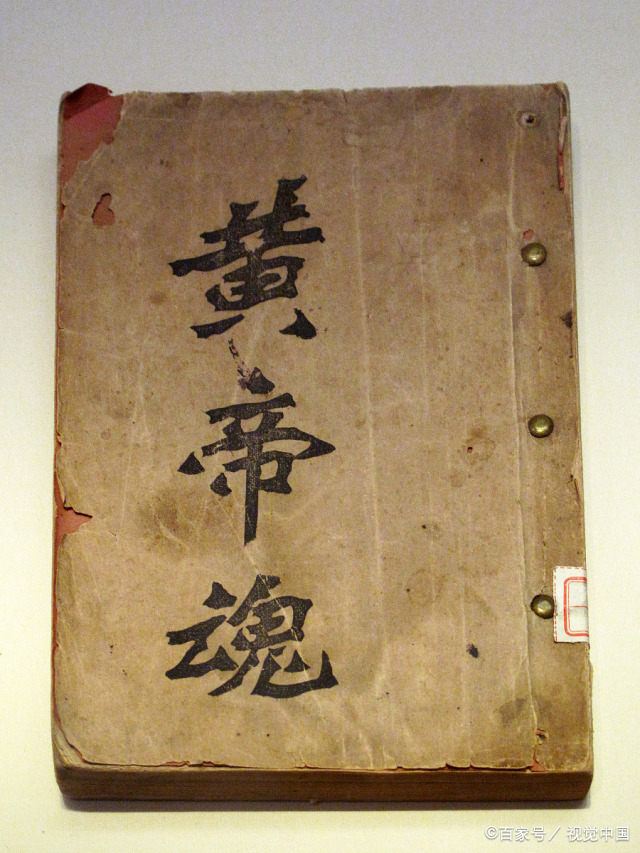 黄帝魂
©百家号／视觉中国